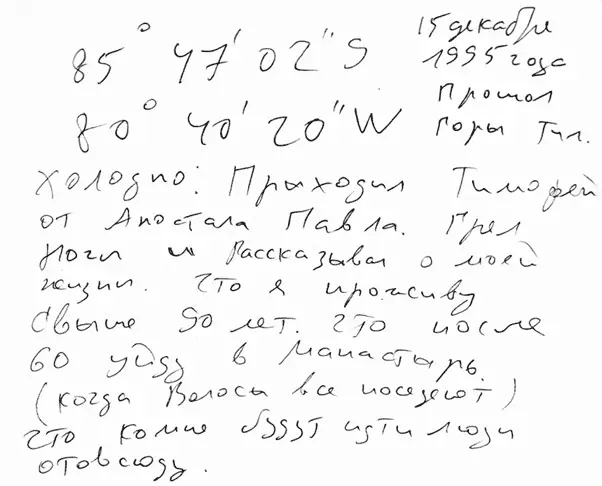 85° 47' 02" S
80° 40' 20" W
15 декабре
1995 года
Прошол
Горы Тил.
Холодно: Прыходил Тимофей
от Апостала Павла. Грел
Ноги и Рассказывал о моей
жизни. Что я проживу
Свыше 90 лет. Что после
60 уйду в манастырь.
(когда Волосы все поседеют)
Что ко мне будут идти люди
отовсюду.